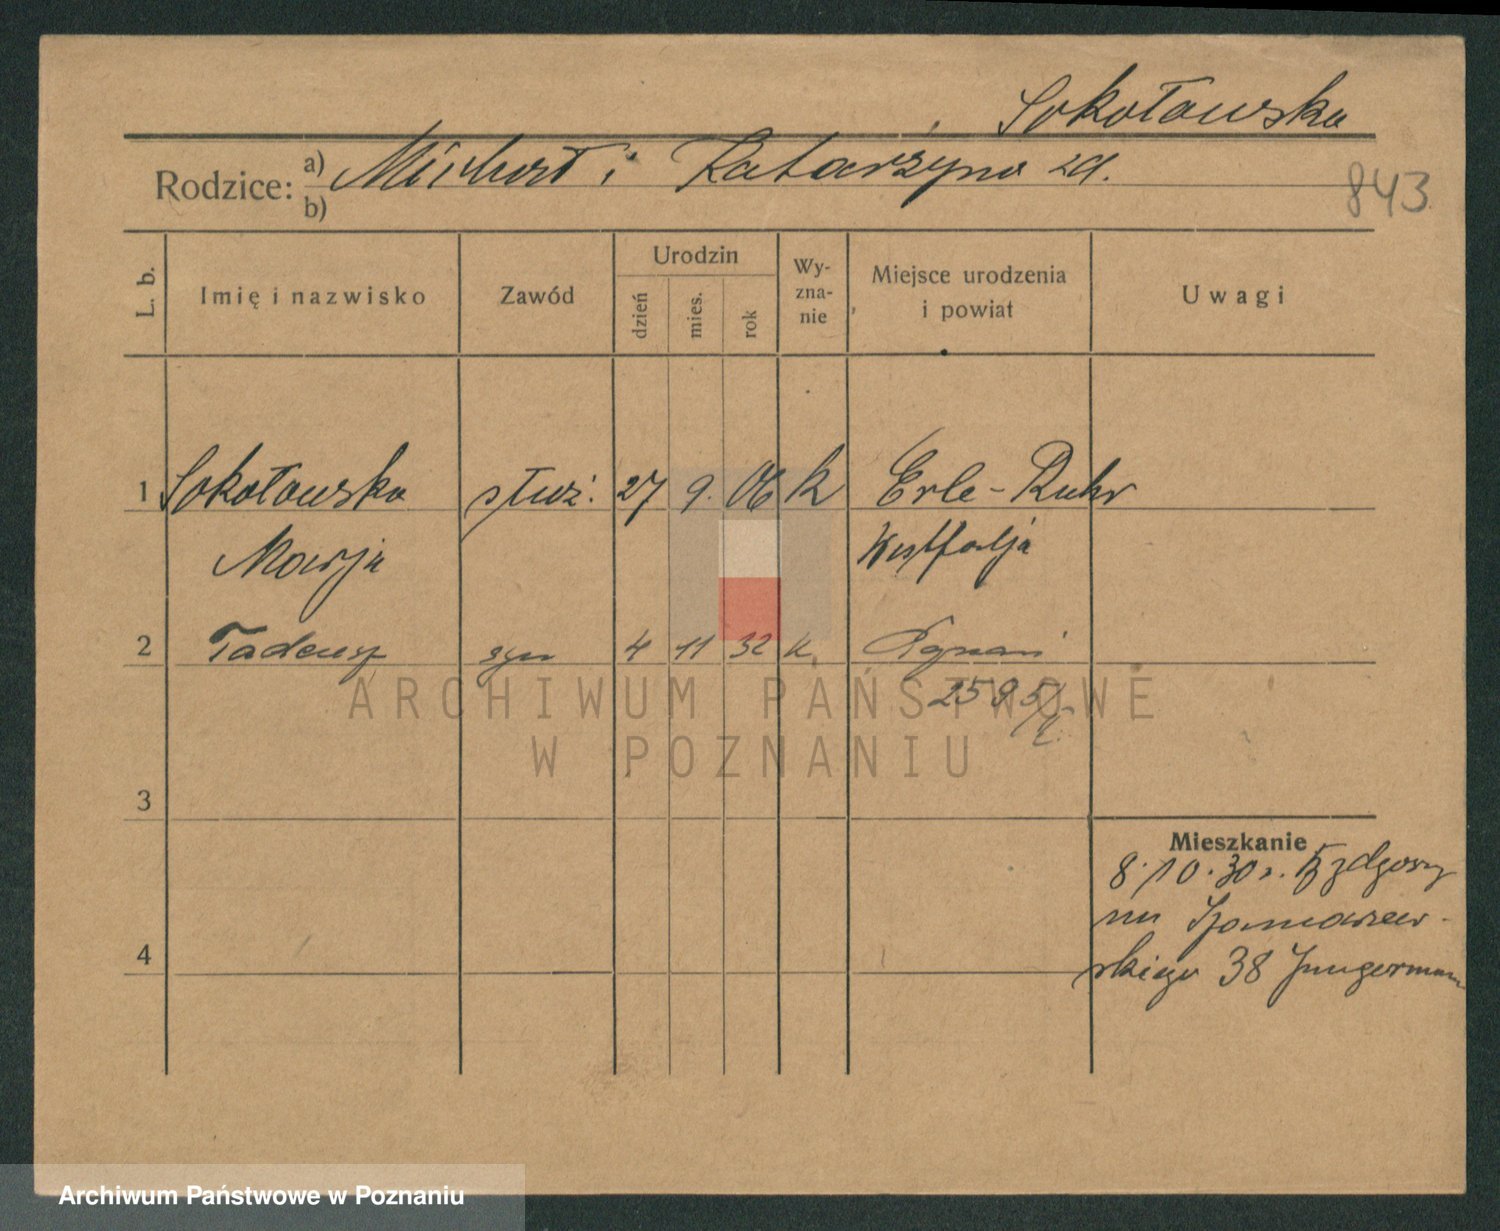 Sokołowska
Rodzice: a) Michał i Katarzyna zd.
b)
843
L. b.
Imię i nazwisko
Zawód
Urodzin
dzień
mies.
rok
Wy-
zna-
nie
Miejsce urodzenia
i powiat
Uwagi
1 Sokołowska służ. 27 9. 06 k Erle - Ruhr
Marja Westfalja
2 Tadeusz syn 4 11 32 k. Poznań
2595/
ARCHIWUM PAŃSTWOWE
W POZNANIU
3
Mieszkanie
8.10.30 z Bydgoszy
na Szamarzew-
4
skiego 38 Jungermann
Archiwum Państwowe w Poznaniu